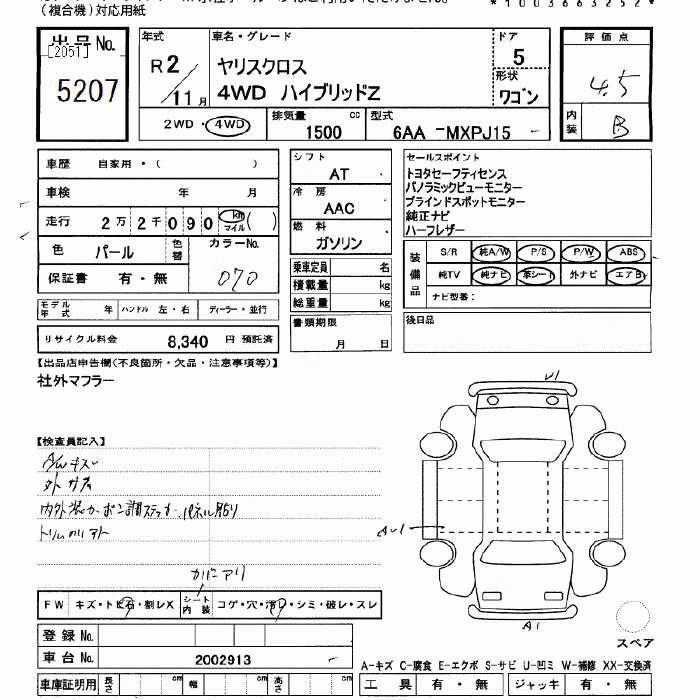 (複合機)対応用紙
*1003663252*
出品No.
[2051]
5207
年式
R2/11月
車名・グレード
ヤリスクロス
4WD ハイブリッドZ
ドア
5
形状
ワゴン
評価点
4.5
内装
B
2WD・4WD
排気量
1500 cc
型式
6AA -MXPJ15 -
車歴 自家用・( )
車検 年 月
走行 2万2千090 km マイル( )
色 パール 色替
カラーNo.
070
保証書 有・無
モデル年式 年 ハンドル 左・右 ディーラー・並行
リサイクル料金 8,340 円 預託済
シフト
AT
冷房
AAC
燃料
ガソリン
乗車定員 名
積載量 kg
総重量 kg
書類期限
月 日
セールスポイント
トヨタセーフティセンス
パノラミックビューモニター
ブラインドスポットモニター
純正ナビ
ハーフレザー
装備品
S/R 純A/W P/S P/W ABS
純TV 純ナビ 革シート 外ナビ エアB
ナビ型番:
後日品
【出品店申告欄(不良箇所・欠品・注意事項等)】
社外マフラー
【検査員記入】
A/Wキズ
外サガ
内外装カーボン調ステッカー、パネル貼り
カバーアリ
W1
AW1
A1
FW キズ・トビ石・割レX
シート内装 コゲ・穴・汚レ・シミ・破レ・スレ
登録No.
車台No. 2002913
車庫証明用 長さ cm 幅 cm 高さ cm
スペア
A-キズ C-腐食 E-エクボ S-サビ U-凹ミ W-補修 XX-交換済
工具 有・無 ジャッキ 有・無